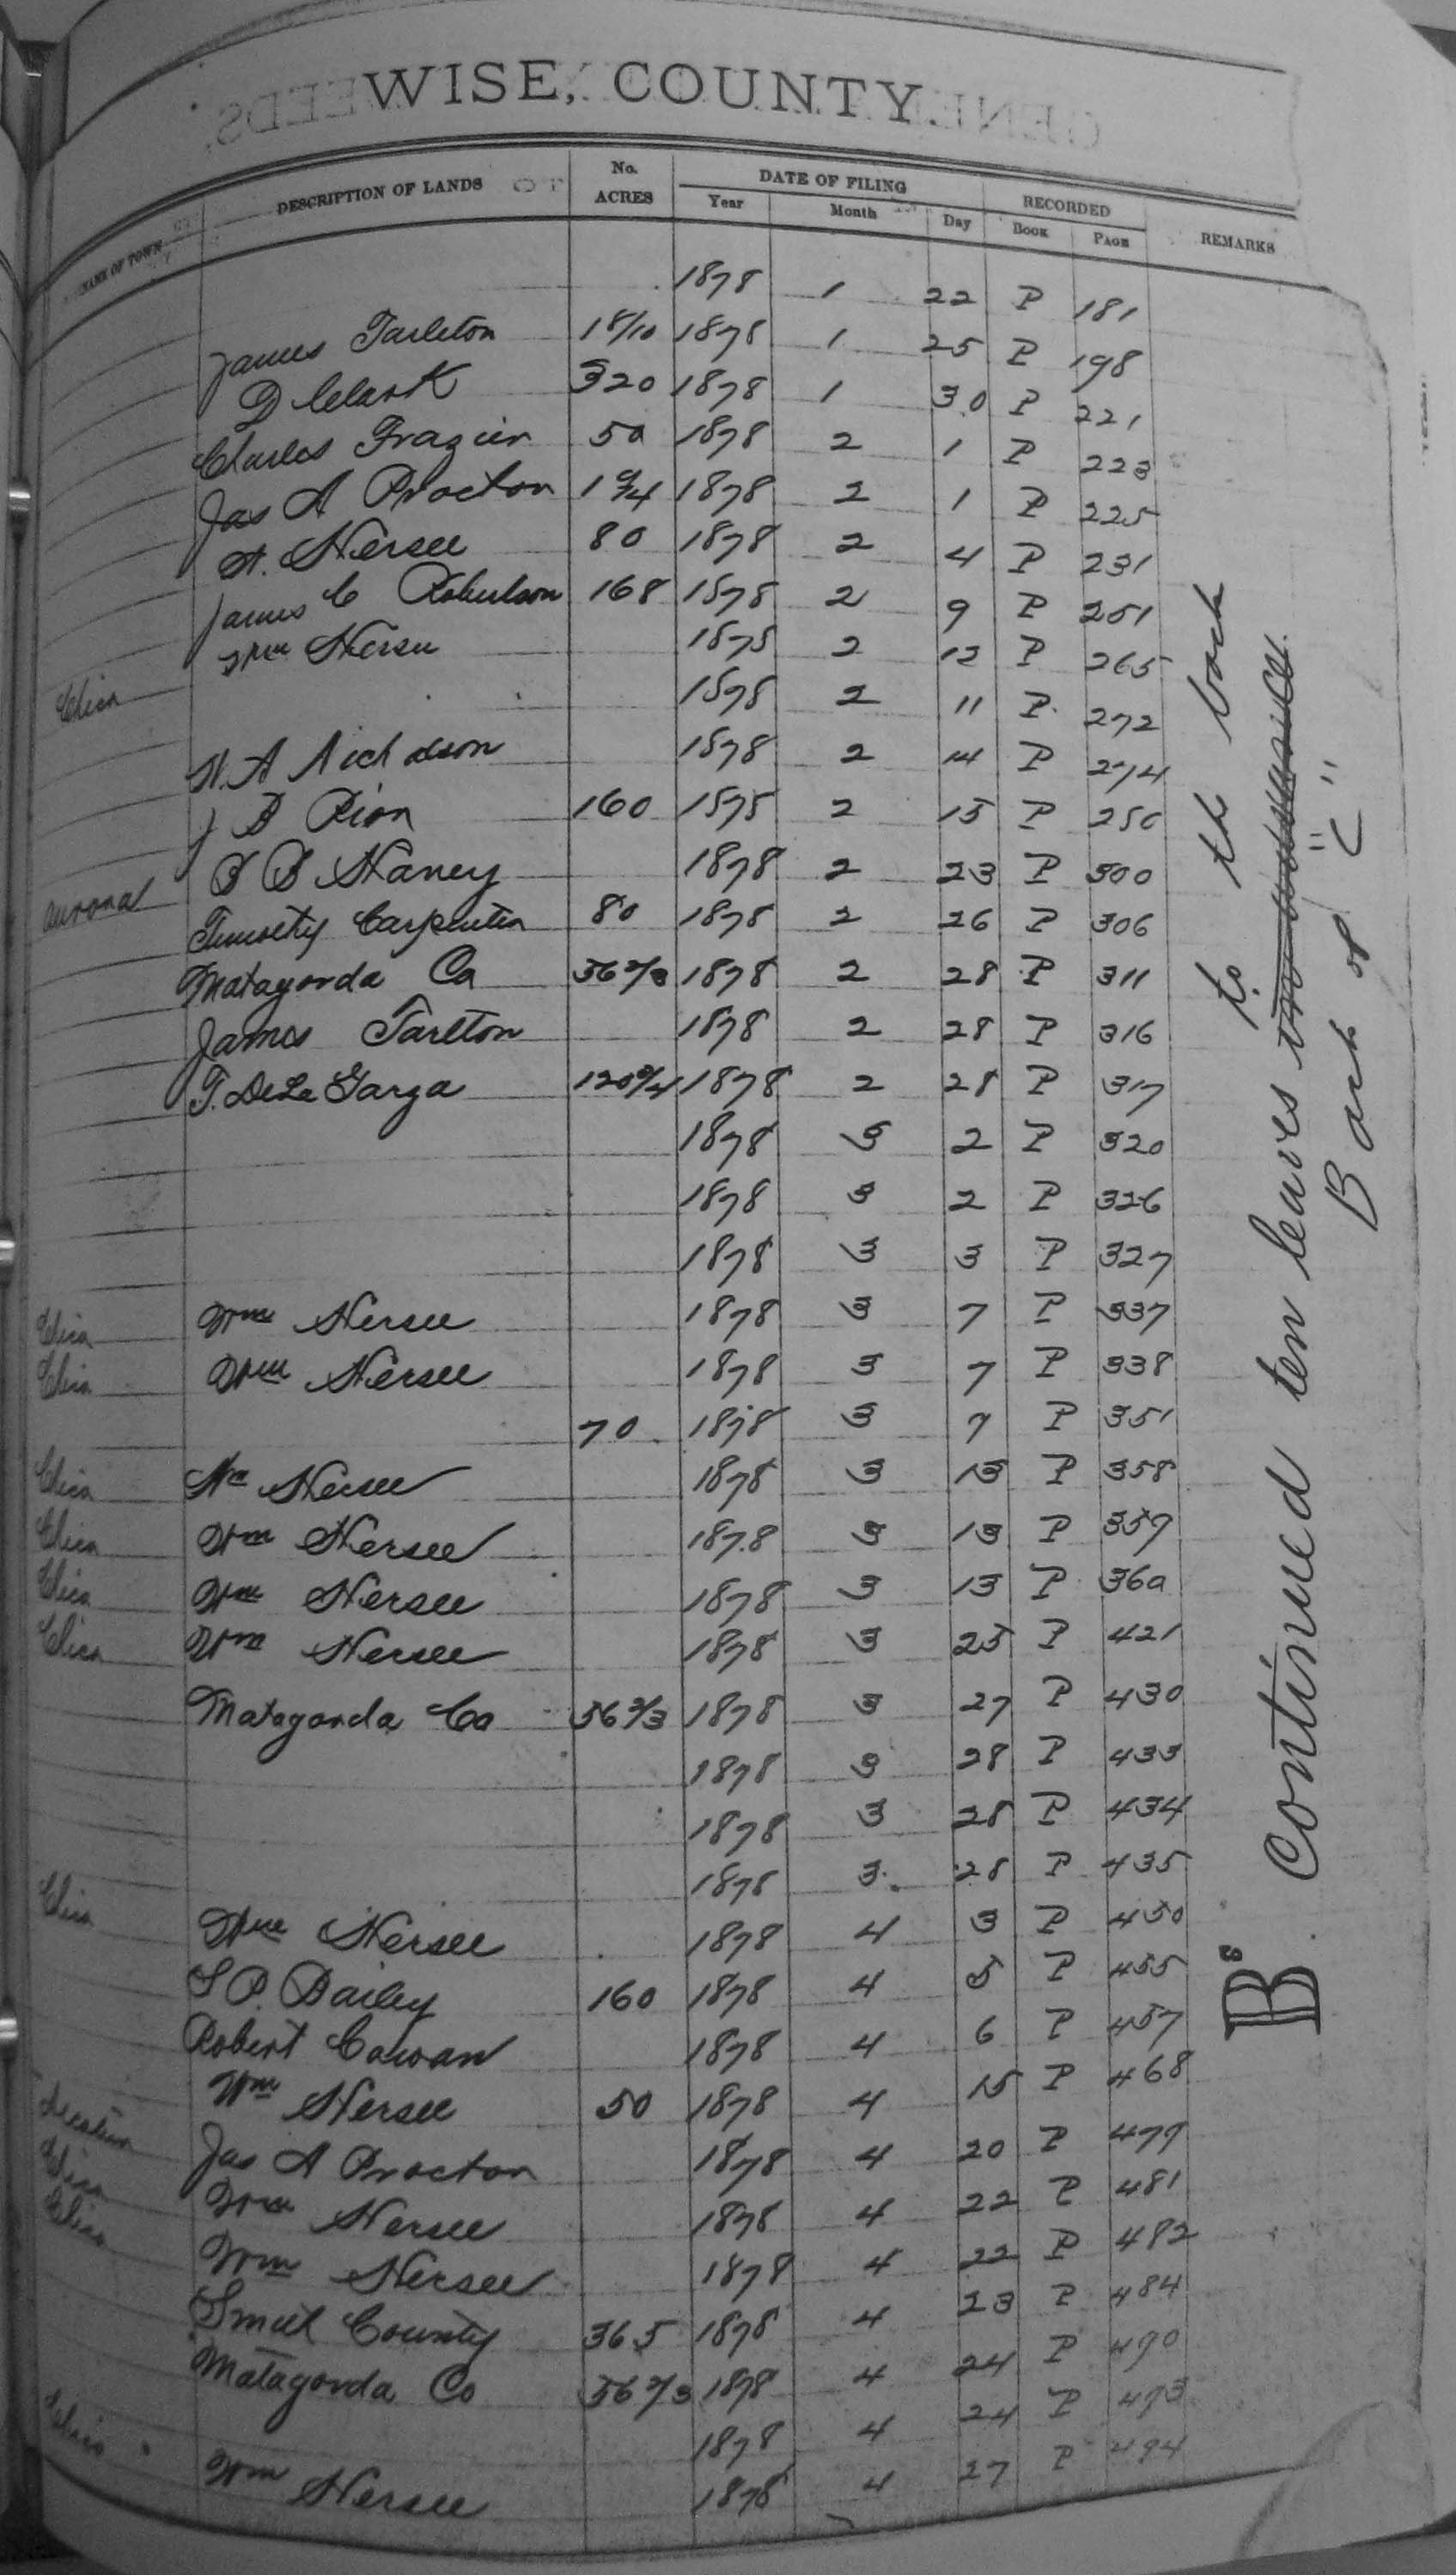 WISE, COUNTY
NAME OF TOWN DESCRIPTION OF LANDS No. ACRES DATE OF FILING RECORDED REMARKS
Year Month Day BOOK PAGE
1878 1 22 P 181
James Tarleton 18/10 1878 1 25 P 198
D Clark 320 1878 1 30 P 221
Charles Frazier 50 1878 2 1 P 223
Jas A Procton 1878 2 1 P 225
H. Hersee 80 1878 2 4 P 231
James C Robertson 168 1878 2 9 P 251
Wm Hersee 1878 2 12 P 265
Chica 1878 2 11 P. 272
W. A Nicholson 1878 2 14 P 274
J B Rion 160 1878 2 15 P
B B Haney 1878 2 23 P 300
Aurora Timothy Carpenter 80 1878 2 26 P 306
Matagorda Co 56 2/3 1878 2 28 P 311
James Tarlton 1878 2 28 P 316
T. DeLa Garza 1878 2 28 P 317
1878 3 2 P 320
1878 3 2 P 326
1878 3 3 P 327
Chica Wm Hersee 1878 3 7 P 337
Chica Wm Hersee 1878 3 7 P 338
70 1878 3 9 P 351
Chica Wm Hersee 1878 3 13 P 358
Chica Wm Hersee 1878 3 13 P 359
Chica Wm Hersee 1878 3 13 P 360
Chica Wm Hersee 1878 3 25 P 421
Matagorda Co 56 2/3 1878 3 27 P 430
1878 3 28 P 433
1878 3 28 P 434
1878 3. 28 P 435
Chica Wm Hersee 1878 4 3 P 450
S P. Bailey 160 1878 4 5 P 455
Robert Cowan 1878 4 6 P 457
Wm Hersee 50 1878 4 15 P 468
Decatur Jas A Procton 1878 4 20 P 479
Chica Wm Hersee 1878 4 22 P 481
Chica Wm Hersee 1878 4 22 P 482
Smith County 365 1878 4 23 P 484
Matagorda Co 56 2/3 1878 4 24 P 490
1878 4 24 P 493
Chica Wm Hersee 1878 4 27 P 494
B3 Continued ten leaves to the back
Back of "C"